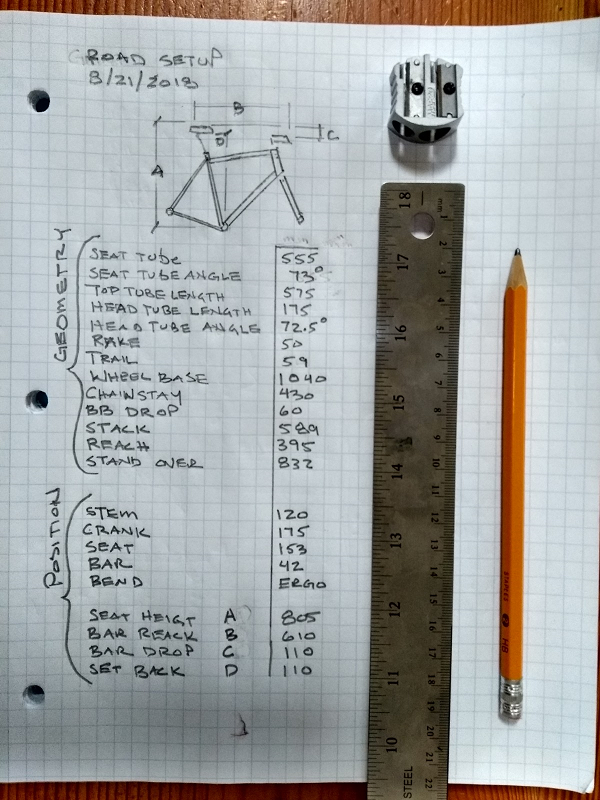 ROAD SETUP
8/21/2013
B
D
C
A
GEOMETRY
SEAT TUBE 555
SEAT TUBE ANGLE 73°
TOP TUBE LENGTH 575
HEAD TUBE LENGTH 175
HEAD TUBE ANGLE 72.5°
RAKE 50
TRAIL 59
WHEEL BASE 1040
CHAINSTAY 430
BB DROP 60
STACK 589
REACH 395
STAND OVER 832
POSITION
STEM 120
CRANK 175
SEAT 153
BAR 42
BEND ERGO
SEAT HEIGT A 805
BAR REACK B 610
BAR DROP C 110
SET BACK D 110
18
17
16
15
14
13
12
11
10
mm
1
2
3
4
5
6
7
8
9
10
11
12
13
14
15
16
17
18
19
20
21
22
STEEL
STAPLES 2 HB